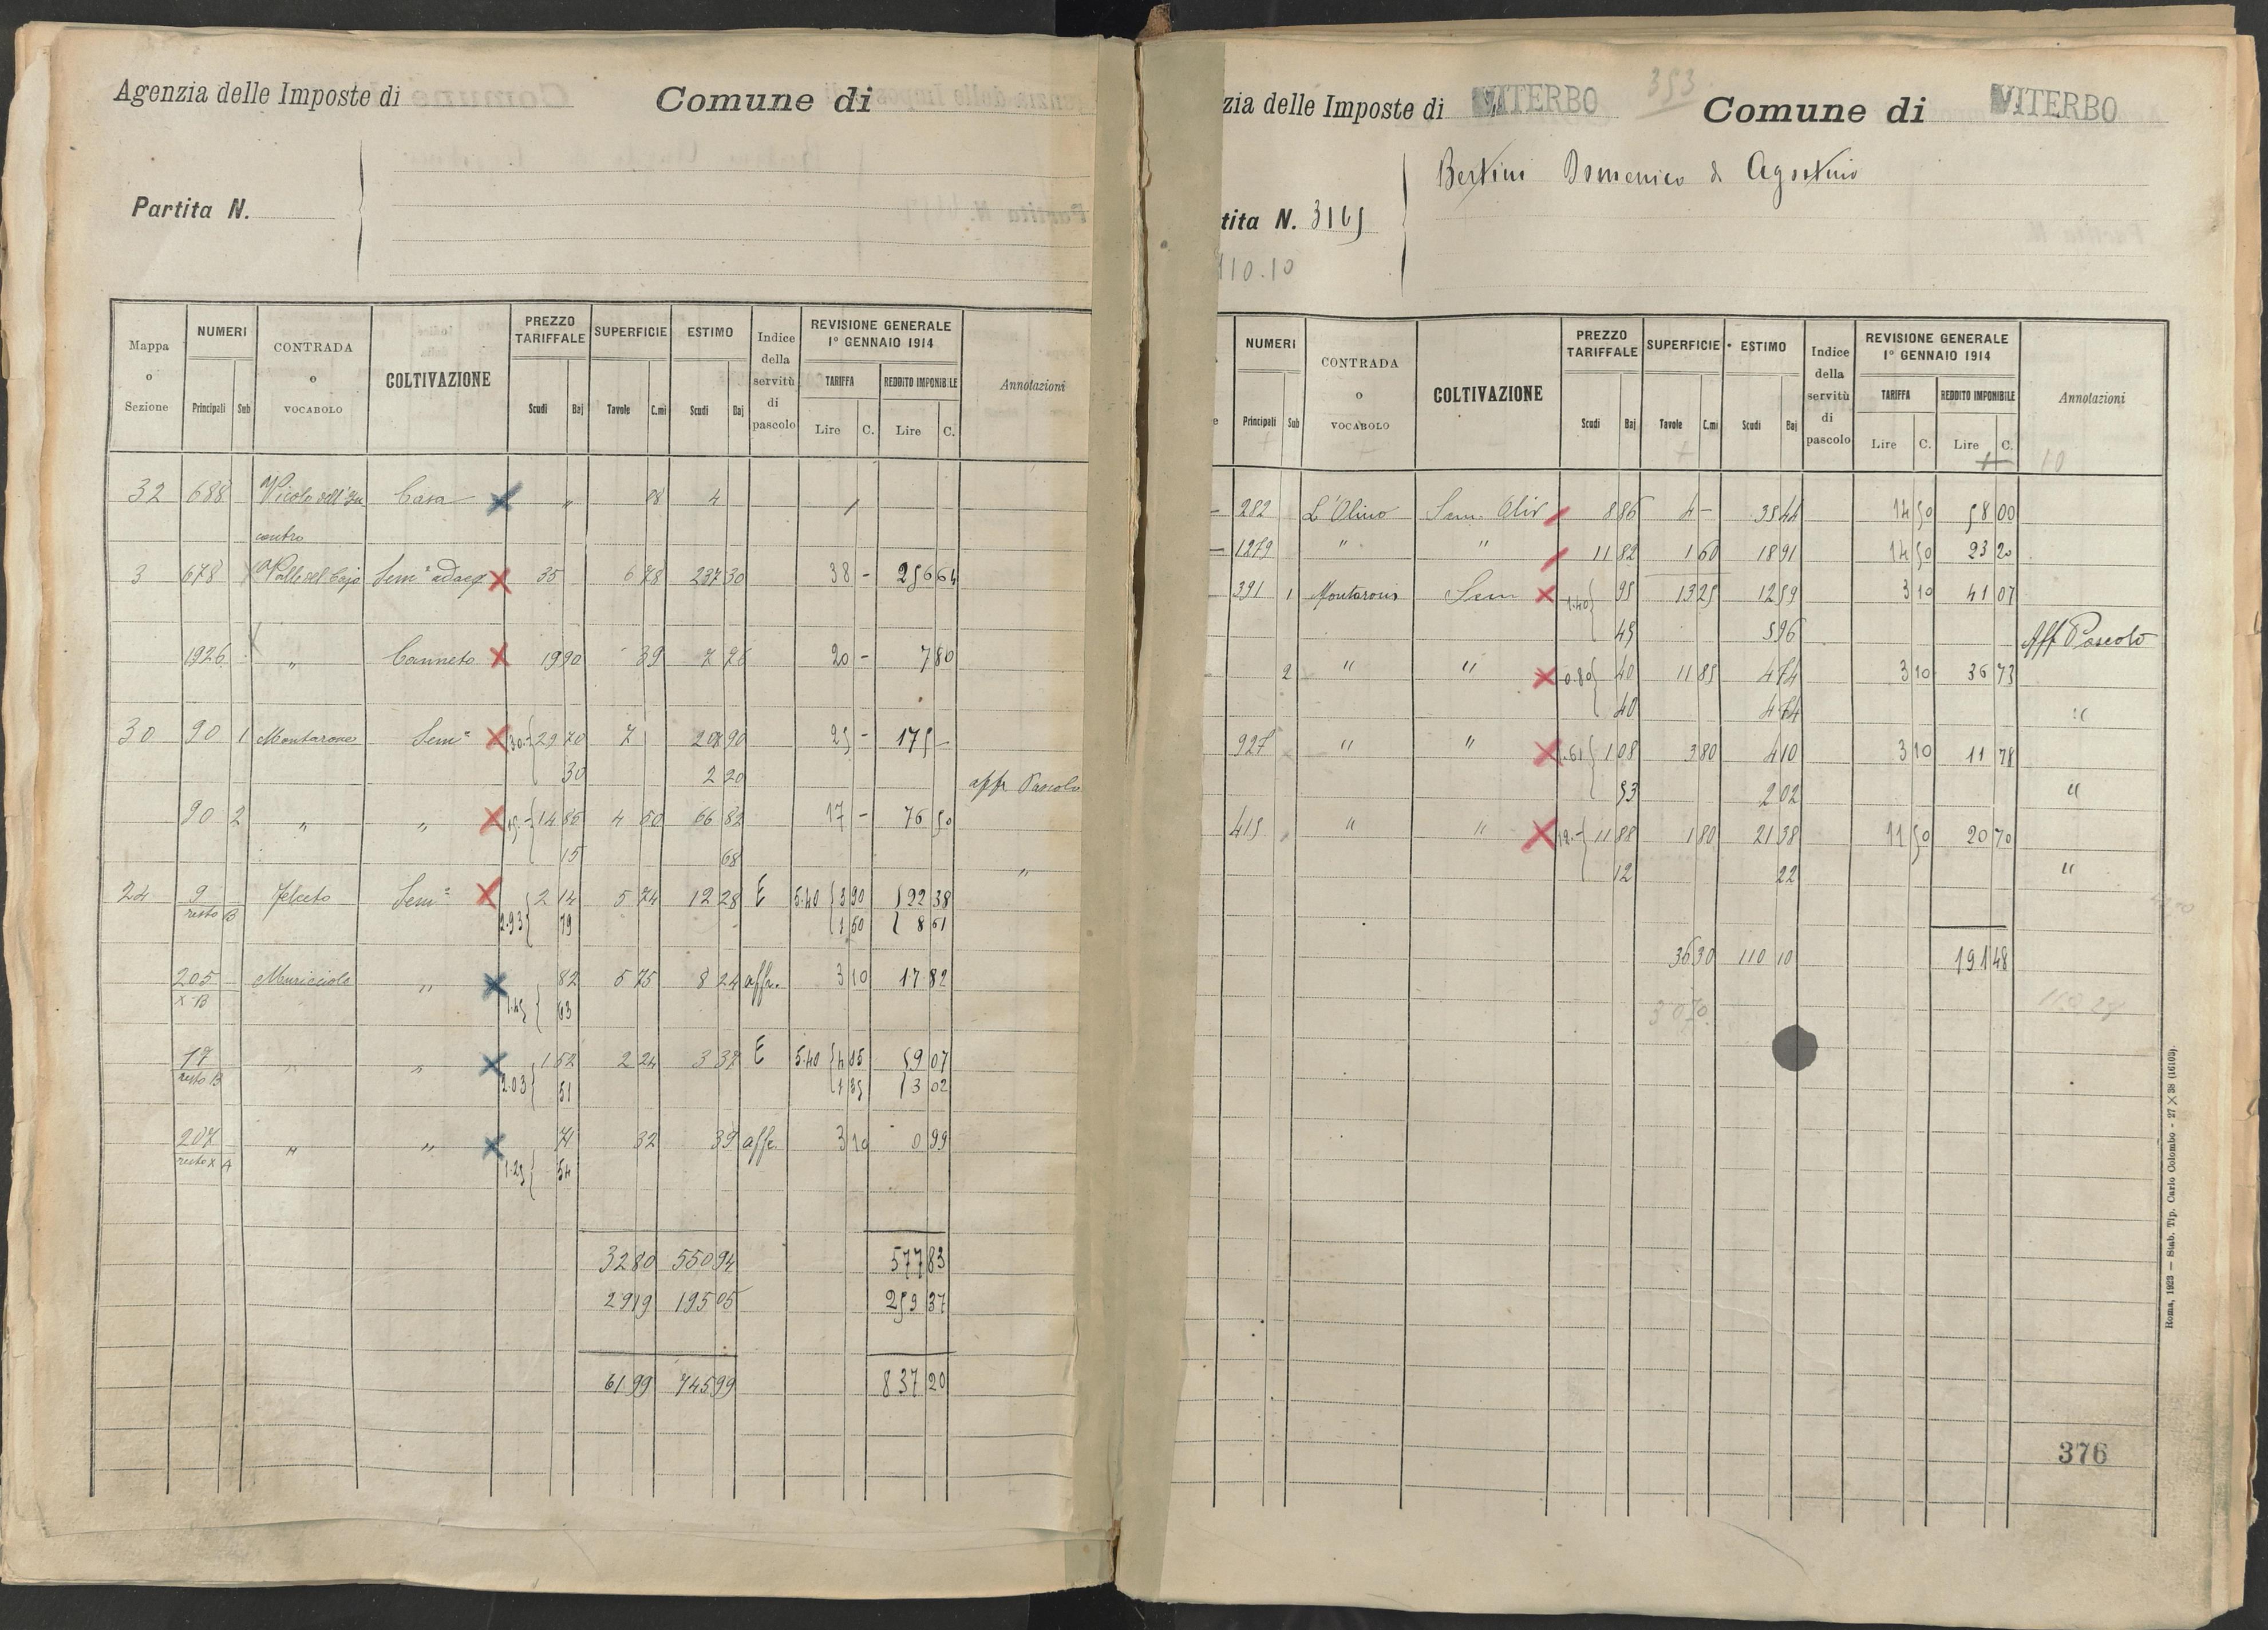 Agenzia delle Imposte di Comune di
Partita N.
Mappa o Sezione NUMERI Principali Sub CONTRADA o VOCABOLO COLTIVAZIONE PREZZO TARIFFALE Scudi Baj SUPERFICIE Tavole C.mi ESTIMO Scudi Baj Indice della servitù di pascolo REVISIONE GENERALE 1° GENNAIO 1914 TARIFFA Lire C. REDDITO IMPONIBILE Lire C. Annotazioni
32 688 Vicolo dell'In Casa " 08 4
contro
3 678 Valle del Cajo Sem° adacq 35 6 78 237 30 38 - 256 64
1926 " Canneto 19 90 39 7 76 20 - 7 80
30 90 1 Montarone Sem° 30.- 29 70 7 207 90 25 - 175 -
30 2 20 affr Pascolo
90 2 " " 15.- 14 85 4 50 66 82 17 - 76 50
15 68 "
24 9 Felceto Sem° 2 14 5 74 12 28 E 5.40 3 90 22 38
resto B 2.93 79 1 50 8 61
205 Muricciolo " 82 5 75 8 24 affr. 3 10 17 82
x B 1.45 63
17 " " 1 52 2 24 3 37 E 5.40 4 05 9 07
resto B 2.03 51 1 35 3 02
207 " " 71 32 39 affr. 3 10 0 99
resto x A 1.25 54
32 80 550 94 577 83
29 19 195 05 259 37
61 99 745 99 837 20
zia delle Imposte di VITERBO 353 Comune di VITERBO
Bertini Domenico di Agostino
tita N. 3165
110.10
NUMERI Principali Sub CONTRADA o VOCABOLO COLTIVAZIONE PREZZO TARIFFALE Scudi Baj SUPERFICIE Tavole C.mi ESTIMO Scudi Baj Indice della servitù di pascolo REVISIONE GENERALE 1° GENNAIO 1914 TARIFFA Lire C. REDDITO IMPONIBILE Lire C. Annotazioni
10
282 L'Olivo Sem. Oliv 8 86 4 - 35 44 14 50 58 00
1279 " " 11 82 1 60 18 91 14 50 23 20
391 1 Montarone Sem 1.40 95 13 25 12 59 3 10 41 07
45 5 96 Aff Pascolo
2 " " 0.80 40 11 85 4 74 3 10 36 73
40 4 74 "
927 " " 1.61 1 08 3 80 4 10 3 10 11 78
53 2 02 "
415 " " 12.- 11 88 1 80 21 38 11 50 20 70
12 22 "
36 30 110 10 191 48
30 70
376
Roma, 1923 — Stab. Tip. Carlo Colombo - 27 × 38 (16103).